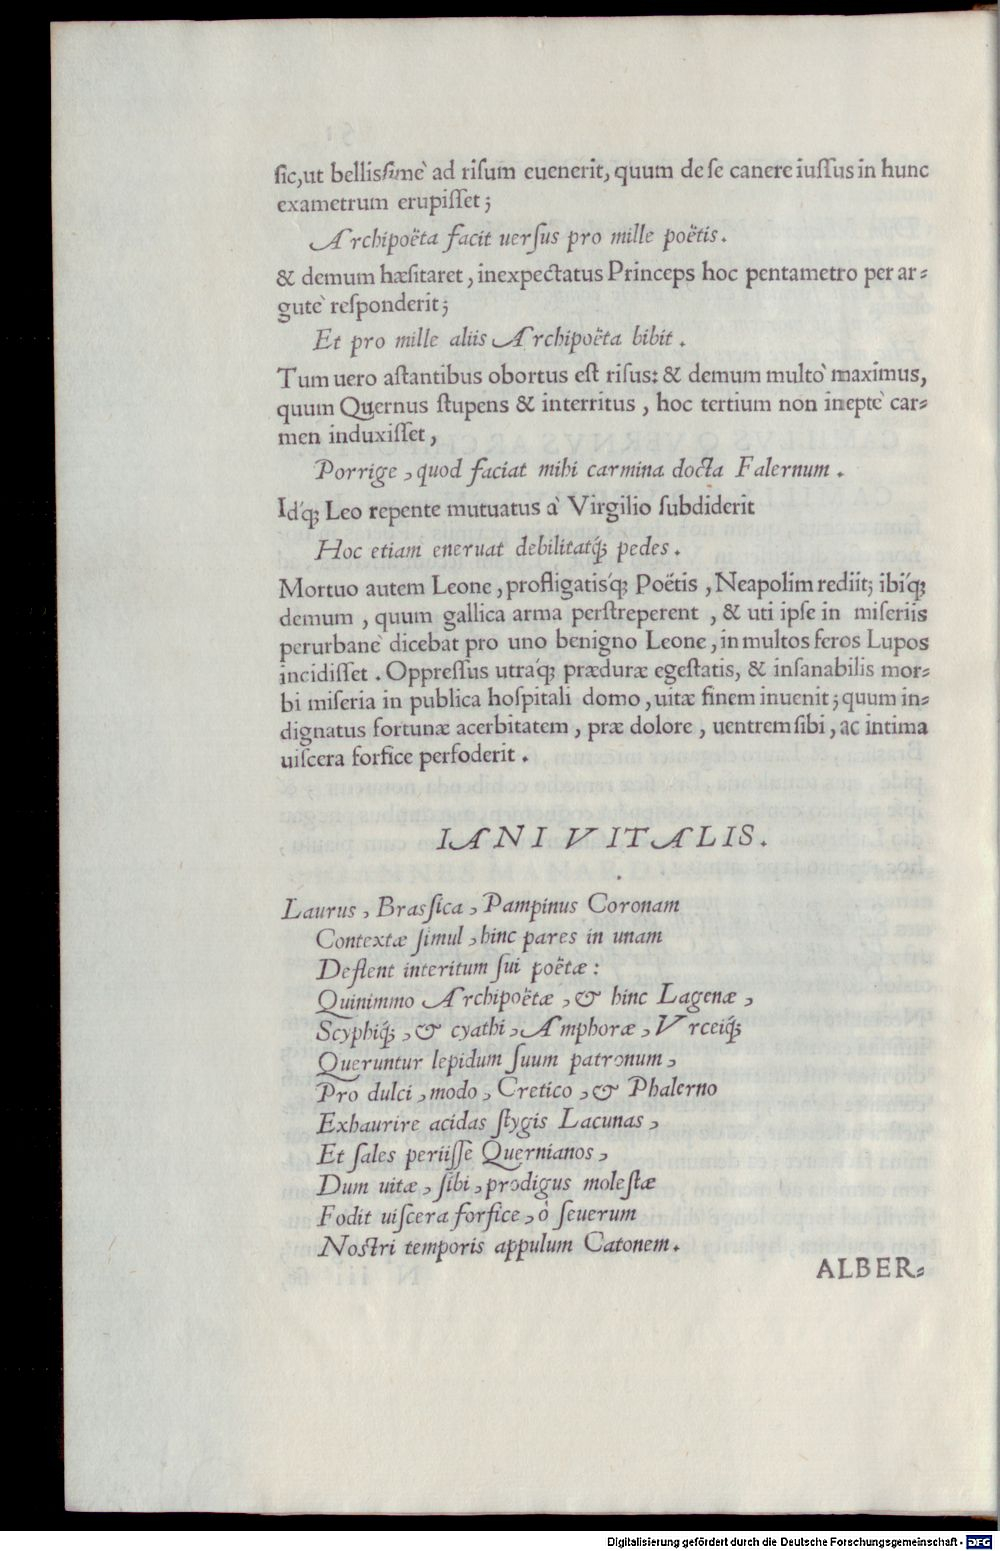 sic,ut bellissimè ad risum euenerit, quum de se canere iussus in hunc
exametrum erupisset;
Archipoëta facit uersus pro mille poëtis.
& demum hæsitaret, inexpectatus Princeps hoc pentametro per ar-
gutè responderit;
Et pro mille aliis Archipoëta bibit.
Tum uero astantibus obortus est risus: & demum multò maximus,
quum Quernus stupens & interritus, hoc tertium non ineptè car-
men induxisset,
Porrige, quod faciat mihi carmina docta Falernum.
Idq́; Leo repente mutuatus à Virgilio subdiderit
Hoc etiam eneruat debilitatq́; pedes.
Mortuo autem Leone, profligatisq́; Poëtis, Neapolim rediit; ibiq́;
demum, quum gallica arma perstreperent, & uti ipse in miseriis
perurbanè dicebat pro uno benigno Leone, in multos feros Lupos
incidisset. Oppressus utraq́; præduræ egestatis, & insanabilis mor-
bi miseria in publica hospitali domo, uitæ finem inuenit; quum in-
dignatus fortunæ acerbitatem, præ dolore, uentrem sibi, ac intima
uiscera forfice perfoderit.
IANI VITALIS.
Laurus, Brassica, Pampinus Coronam
Contextæ simul, hinc pares in unam
Deflent interitum sui poëtæ:
Quinimmo Archipoëtæ, & hinc Lagenæ,
Scyphiq́;, & cyathi, Amphoræ, Vrceiq́;
Queruntur lepidum suum patronum,
Pro dulci, modo, Cretico, & Phalerno
Exhaurire acidas stygis Lacunas,
Et sales periisse Quernianos,
Dum uitæ, sibi, prodigus molestæ
Fodit uiscera forfice, ò seuerum
Nostri temporis appulum Catonem.
ALBER-
Digitalisierung gefördert durch die Deutsche Forschungsgemeinschaft - DFG